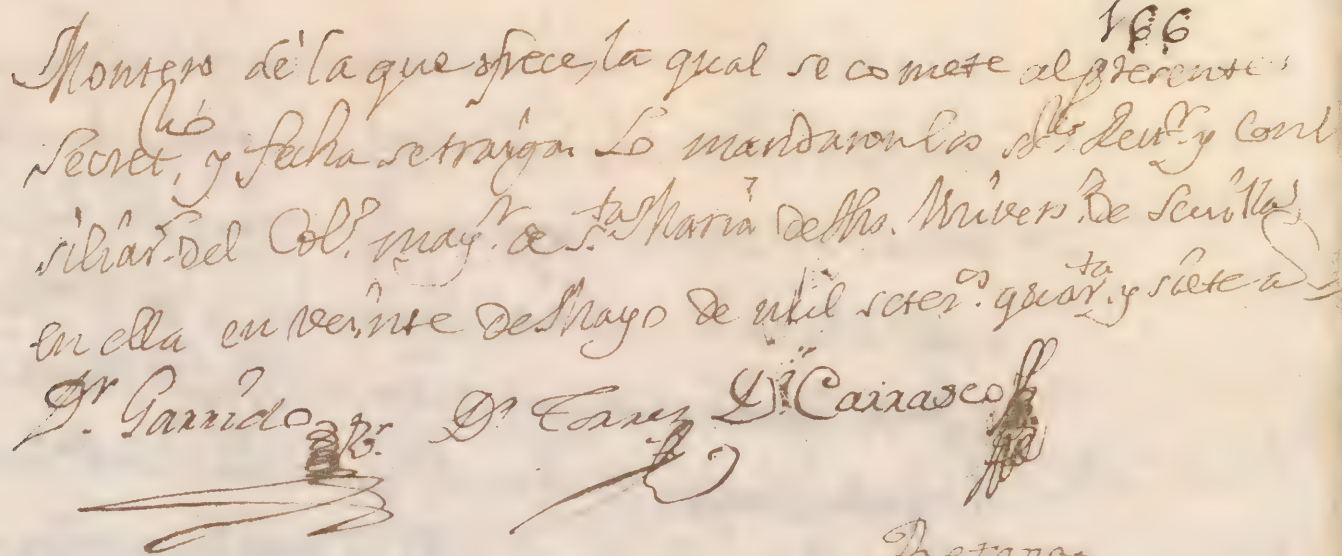 166
Montero de la que ofrece, la qual se comete al presente
Secret.rio, y fecha se traiga. Lo mandaron los ss.res Rect.r y Conci
siliar.s del Col.o may.r de S.ta Maria de Jhs. Univers.d de Sevilla
en ella en veinte de Mayo de mil seter.os quar.ta y siete a
D.r Garrido R.r D.r Torres D.r Carrasco